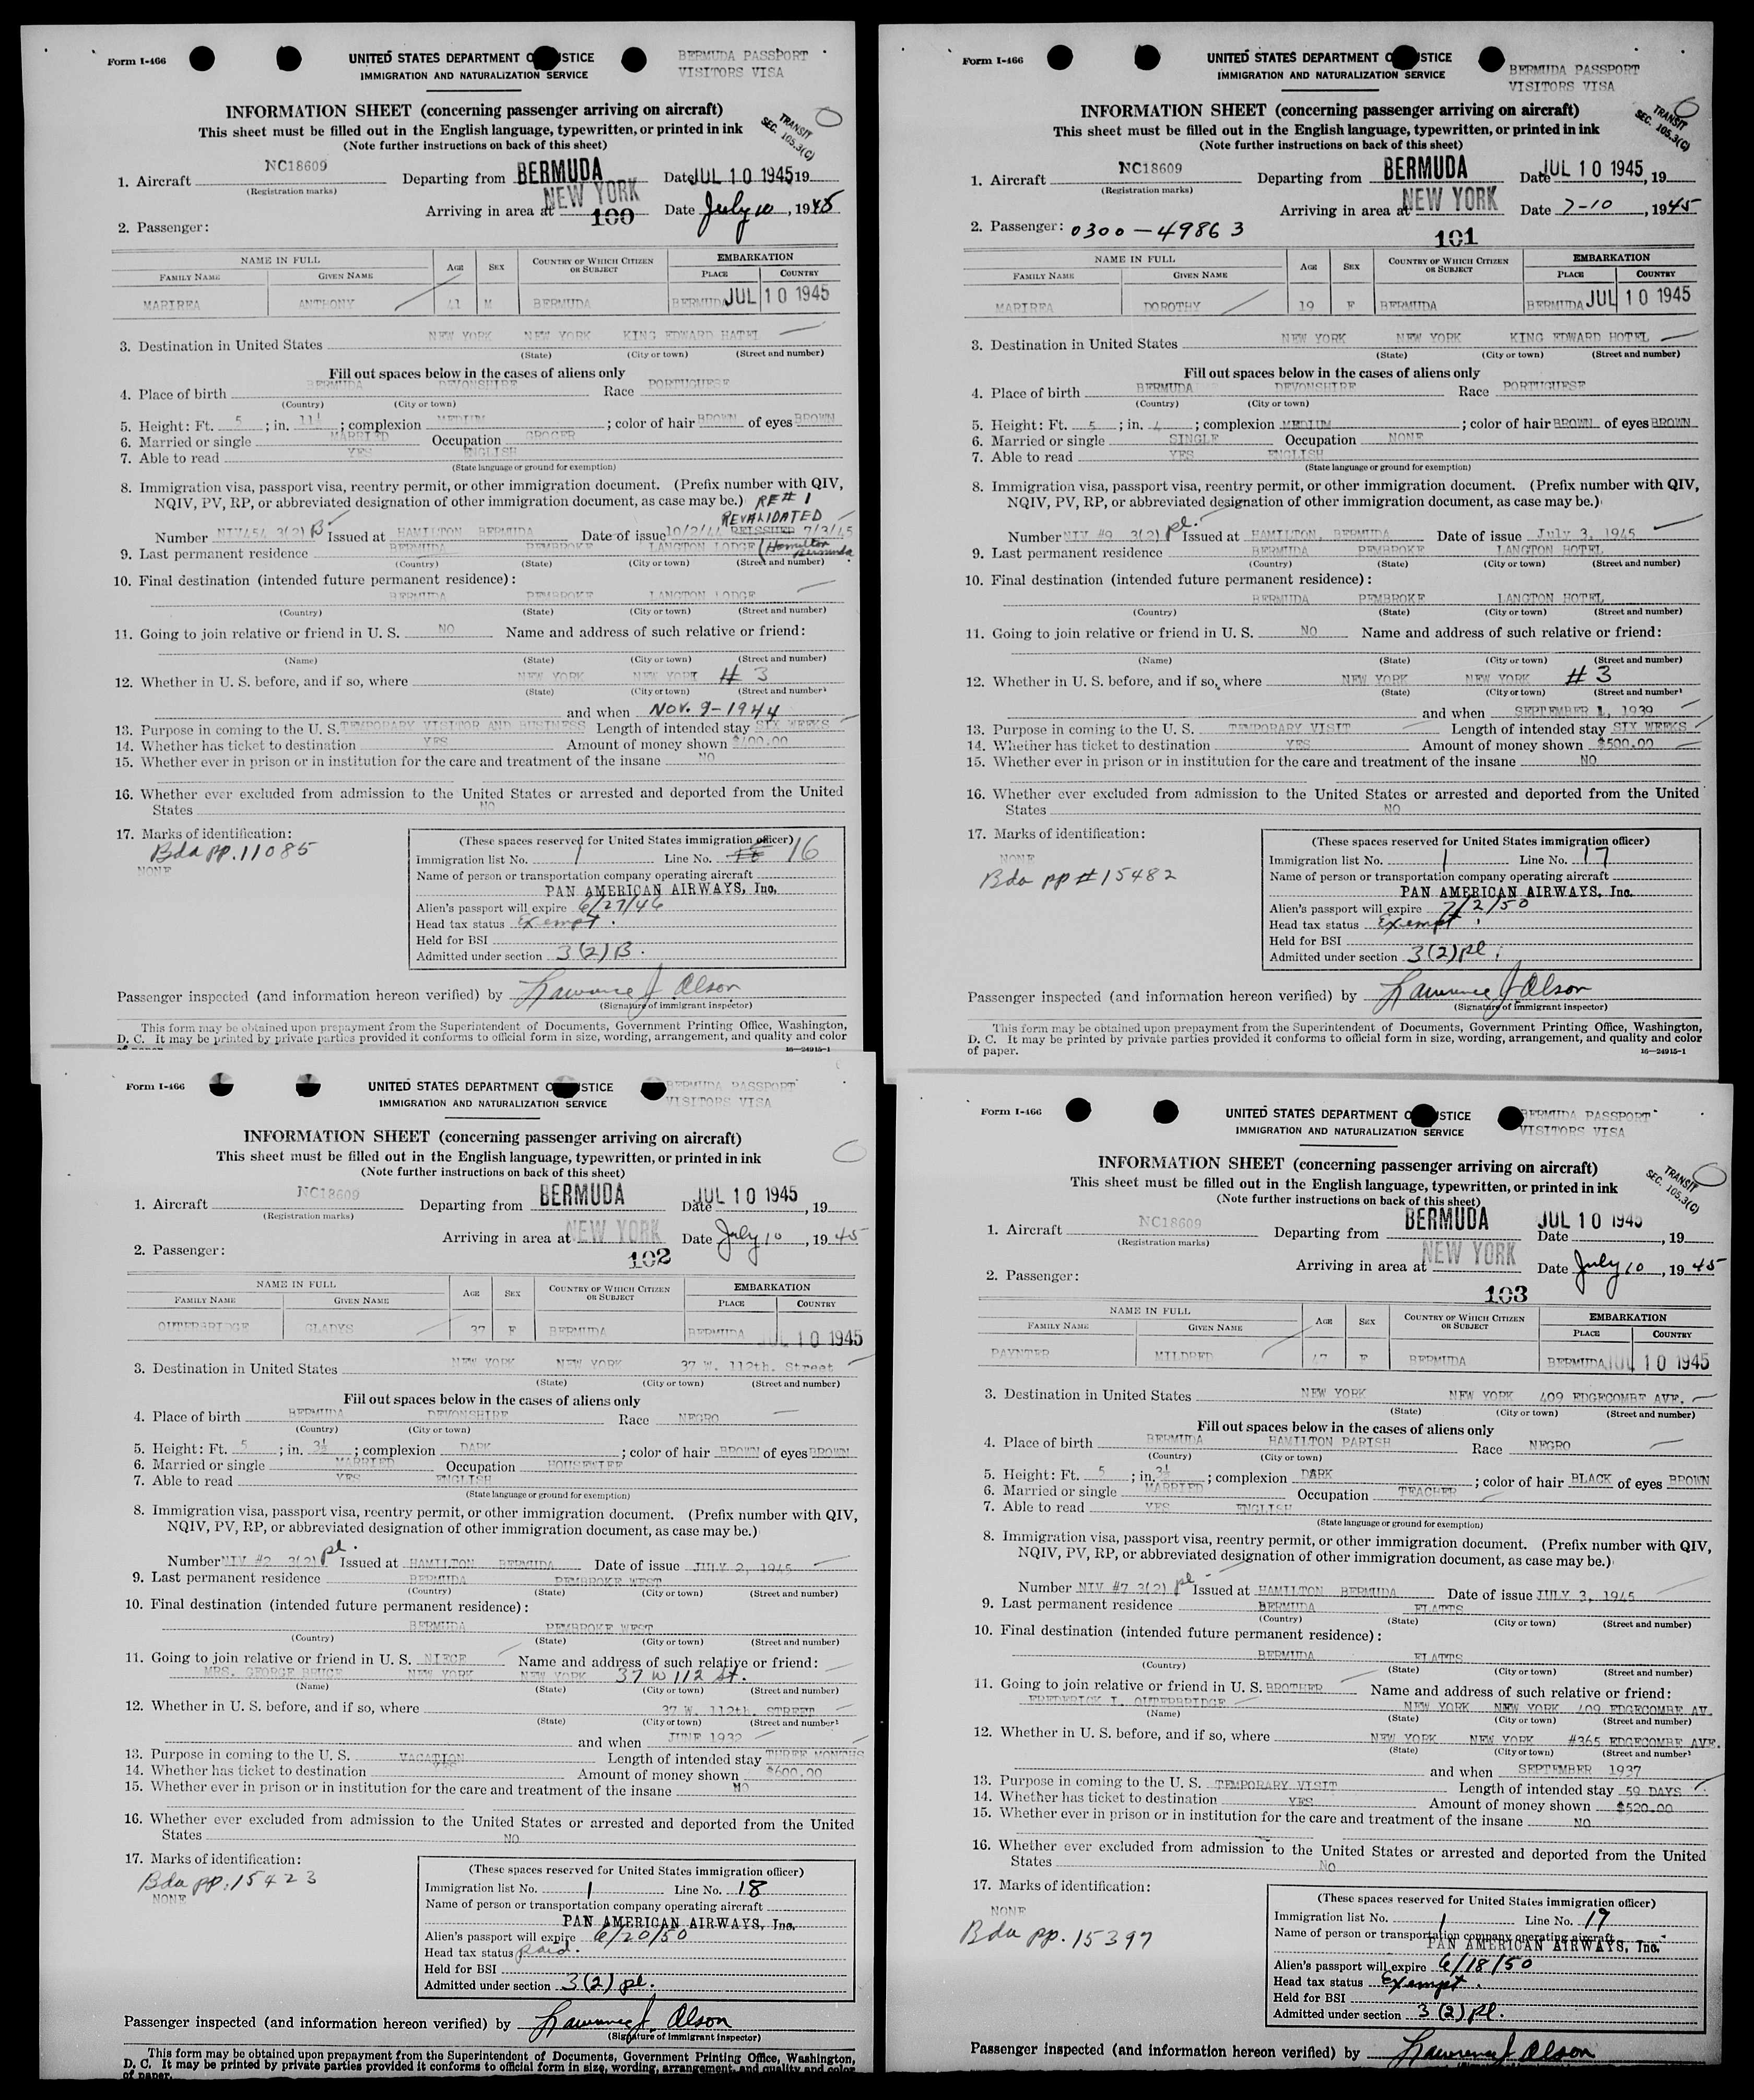 Form I-466
UNITED STATES DEPARTMENT O STICE
IMMIGRATION AND NATURALIZATION SERVICE
BERMUDA PASSPORT
VISITORS VISA
INFORMATION SHEET (concerning passenger arriving on aircraft)
This sheet must be filled out in the English language, typewritten, or printed in ink
(Note further instructions on back of this sheet)
TRANSIT
SEC. 105.3(C)
1. Aircraft NC18609 Departing from BERMUDA Date JUL 10 1945 19
(Registration marks)
Arriving in area at NEW YORK Date July 10, 1945
100
2. Passenger:
NAME IN FULL AGE SEX COUNTRY OF WHICH CITIZEN OR SUBJECT EMBARKATION
FAMILY NAME GIVEN NAME PLACE COUNTRY
MARIREA ANTHONY 41 M BERMUDA BERMUDA JUL 10 1945
3. Destination in United States NEW YORK NEW YORK KING EDWARD HATEL
(State) (City or town) (Street and number)
Fill out spaces below in the cases of aliens only
4. Place of birth BERMUDA DEVONSHIRE Race PORTUGUESE
(Country) (City or town)
5. Height: Ft. 5 ; in. 11½ ; complexion MEDIUM ; color of hair BROWN of eyes BROWN
6. Married or single MARRIED Occupation GROCER
7. Able to read YES ENGLISH
(State language or ground for exemption)
8. Immigration visa, passport visa, reentry permit, or other immigration document. (Prefix number with QIV,
NQIV, PV, RP, or abbreviated designation of other immigration document, as case may be.) RE# 1
REVALIDATED
Number NIV454 3(2) B Issued at HAMILTON BERMUDA Date of issue 10/2/44 REISSUED 7/3/45
9. Last permanent residence BERMUDA PEMBROKE LANGTON LODGE (Hamilton Bermuda
(Country) (State) (City or town) (Street and number)
10. Final destination (intended future permanent residence):
BERMUDA PEMBROKE LANGTON LODGE
(Country) (State) (City or town) (Street and number)
11. Going to join relative or friend in U. S. NO Name and address of such relative or friend:
(Name) (State) (City or town) (Street and number)
12. Whether in U. S. before, and if so, where NEW YORK NEW YORK # 3
(State) (City or town) (Street and number)
and when NOV. 9-1944
13. Purpose in coming to the U. S. TEMPORARY VISITOR AND BUSINESS Length of intended stay SIX WEEKS
14. Whether has ticket to destination YES Amount of money shown
15. Whether ever in prison or in institution for the care and treatment of the insane NO
16. Whether ever excluded from admission to the United States or arrested and deported from the United
States NO
17. Marks of identification:
Bda pp. 11085
NONE
(These spaces reserved for United States immigration officer)
Immigration list No. 1 Line No. 16
Name of person or transportation company operating aircraft
PAN AMERICAN AIRWAYS, Inc.
Alien's passport will expire 6/27/46
Head tax status Exempt.
Held for BSI
Admitted under section 3(2) B.
Passenger inspected (and information hereon verified) by Lawrence J. Olson
(Signature of immigrant inspector)
This form may be obtained upon prepayment from the Superintendent of Documents, Government Printing Office, Washington,
D. C. It may be printed by private parties provided it conforms to official form in size, wording, arrangement, and quality and color
of paper. 16—24915-1
Form I-466
UNITED STATES DEPARTMENT O STICE
IMMIGRATION AND NATURALIZATION SERVICE
BERMUDA PASSPORT
VISITORS VISA
INFORMATION SHEET (concerning passenger arriving on aircraft)
This sheet must be filled out in the English language, typewritten, or printed in ink
(Note further instructions on back of this sheet)
TRANSIT
SEC. 105.3(C)
1. Aircraft NC18609 Departing from BERMUDA Date JUL 10 1945, 19
(Registration marks)
Arriving in area at NEW YORK Date 7-10, 1945
2. Passenger: 0300-49863
101
NAME IN FULL AGE SEX COUNTRY OF WHICH CITIZEN OR SUBJECT EMBARKATION
FAMILY NAME GIVEN NAME PLACE COUNTRY
MARIREA DOROTHY 19 F BERMUDA BERMUDA JUL 10 1945
3. Destination in United States NEW YORK NEW YORK KING EDWARD HOTEL
(State) (City or town) (Street and number)
Fill out spaces below in the cases of aliens only
4. Place of birth BERMUDA DEVONSHIRE Race PORTUGUESE
(Country) (City or town)
5. Height: Ft. 5 ; in. 4 ; complexion MEDIUM ; color of hair BROWN of eyes BROWN
6. Married or single SINGLE Occupation NONE
7. Able to read YES ENGLISH
(State language or ground for exemption)
8. Immigration visa, passport visa, reentry permit, or other immigration document. (Prefix number with QIV,
NQIV, PV, RP, or abbreviated designation of other immigration document, as case may be.)
Number NIV #9 3(2) pl. Issued at HAMILTON, BERMUDA Date of issue July 3, 1945
9. Last permanent residence BERMUDA PEMBROKE LANGTON HOTEL
(Country) (State) (City or town) (Street and number)
10. Final destination (intended future permanent residence):
BERMUDA PEMBROKE LANGTON HOTEL
(Country) (State) (City or town) (Street and number)
11. Going to join relative or friend in U. S. NO Name and address of such relative or friend:
(Name) (State) (City or town) (Street and number)
12. Whether in U. S. before, and if so, where NEW YORK NEW YORK # 3
(State) (City or town) (Street and number)
and when SEPTEMBER 1, 1939
13. Purpose in coming to the U. S. TEMPORARY VISIT Length of intended stay SIX WEEKS
14. Whether has ticket to destination YES Amount of money shown $500.00
15. Whether ever in prison or in institution for the care and treatment of the insane NO
16. Whether ever excluded from admission to the United States or arrested and deported from the United
States NO
17. Marks of identification:
NONE
Bda pp # 15482
(These spaces reserved for United States immigration officer)
Immigration list No. 1 Line No. 17
Name of person or transportation company operating aircraft
PAN AMERICAN AIRWAYS, Inc.
Alien's passport will expire 7/2/50
Head tax status Exempt.
Held for BSI
Admitted under section 3(2) pl.
Passenger inspected (and information hereon verified) by Lawrence J Olson
(Signature of immigrant inspector)
This form may be obtained upon prepayment from the Superintendent of Documents, Government Printing Office, Washington,
D. C. It may be printed by private parties provided it conforms to official form in size, wording, arrangement, and quality and color
of paper. 16—24915-1
Form I-466
UNITED STATES DEPARTMENT O STICE
IMMIGRATION AND NATURALIZATION SERVICE
BERMUDA PASSPORT
VISITORS VISA
INFORMATION SHEET (concerning passenger arriving on aircraft)
This sheet must be filled out in the English language, typewritten, or printed in ink
(Note further instructions on back of this sheet)
1. Aircraft NC18609 Departing from BERMUDA Date JUL 10 1945, 19
(Registration marks)
Arriving in area at NEW YORK Date July 10, 1945
102
2. Passenger:
NAME IN FULL AGE SEX COUNTRY OF WHICH CITIZEN OR SUBJECT EMBARKATION
FAMILY NAME GIVEN NAME PLACE COUNTRY
OUTERBRIDGE GLADYS 37 F BERMUDA BERMUDA JUL 10 1945
3. Destination in United States NEW YORK NEW YORK 37 W. 112th. Street
(State) (City or town) (Street and number)
Fill out spaces below in the cases of aliens only
4. Place of birth BERMUDA DEVONSHIRE Race NEGRO
(Country) (City or town)
5. Height: Ft. 5 ; in. 3½ ; complexion DARK ; color of hair BROWN of eyes BROWN
6. Married or single MARRIED Occupation HOUSEWIFE
7. Able to read YES ENGLISH
(State language or ground for exemption)
8. Immigration visa, passport visa, reentry permit, or other immigration document. (Prefix number with QIV,
NQIV, PV, RP, or abbreviated designation of other immigration document, as case may be.)
Number NIV #2 3(2) pl. Issued at HAMILTON BERMUDA Date of issue JULY 2, 1945
9. Last permanent residence BERMUDA PEMBROKE WEST
(Country) (State) (City or town) (Street and number)
10. Final destination (intended future permanent residence):
BERMUDA PEMBROKE WEST
(Country) (State) (City or town) (Street and number)
11. Going to join relative or friend in U. S. NIECE Name and address of such relative or friend:
MRS. GEORGE BRUCE NEW YORK NEW YORK 37 W 112 St.
(Name) (State) (City or town) (Street and number)
12. Whether in U. S. before, and if so, where 37 W. 112th. STREET
(State) (City or town) (Street and number)
and when JUNE 1932
13. Purpose in coming to the U. S. VACATION Length of intended stay THREE MONTHS
14. Whether has ticket to destination YES Amount of money shown $600.00
15. Whether ever in prison or in institution for the care and treatment of the insane NO
16. Whether ever excluded from admission to the United States or arrested and deported from the United
States NO
17. Marks of identification:
Bda pp. 15423
NONE
(These spaces reserved for United States immigration officer)
Immigration list No. 1 Line No. 18
Name of person or transportation company operating aircraft
PAN AMERICAN AIRWAYS, Inc.
Alien's passport will expire 6/20/50
Head tax status paid.
Held for BSI
Admitted under section 3(2) pl.
Passenger inspected (and information hereon verified) by Lawrence J. Olson
(Signature of immigrant inspector)
This form may be obtained upon prepayment from the Superintendent of Documents, Government Printing Office, Washington,
D. C. It may be printed by private parties provided it conforms to official form in size, wording, arrangement, and quality and color
of paper.
Form I-466
UNITED STATES DEPARTMENT O STICE
IMMIGRATION AND NATURALIZATION SERVICE
BERMUDA PASSPORT
VISITORS VISA
INFORMATION SHEET (concerning passenger arriving on aircraft)
This sheet must be filled out in the English language, typewritten, or printed in ink
(Note further instructions on back of this sheet)
TRANSIT
SEC. 105.3(C)
1. Aircraft NC18609 Departing from BERMUDA Date JUL 10 1945, 19
(Registration marks)
Arriving in area at NEW YORK Date July 10, 1945
2. Passenger:
103
NAME IN FULL AGE SEX COUNTRY OF WHICH CITIZEN OR SUBJECT EMBARKATION
FAMILY NAME GIVEN NAME PLACE COUNTRY
PAYNTER MILDRED 47 F BERMUDA BERMUDA JUL 10 1945
3. Destination in United States NEW YORK NEW YORK 409 EDGECOMBE AVE.
(State) (City or town) (Street and number)
Fill out spaces below in the cases of aliens only
4. Place of birth BERMUDA HAMILTON PARISH Race NEGRO
(Country) (City or town)
5. Height: Ft. 5 ; in. 3½ ; complexion DARK ; color of hair BLACK of eyes BROWN
6. Married or single MARRIED Occupation TEACHER
7. Able to read YES ENGLISH
(State language or ground for exemption)
8. Immigration visa, passport visa, reentry permit, or other immigration document. (Prefix number with QIV,
NQIV, PV, RP, or abbreviated designation of other immigration document, as case may be.)
Number NIV #7 3(2) pl Issued at HAMILTON BERMUDA Date of issue JULY 3, 1945
9. Last permanent residence BERMUDA FLATTS
(Country) (State) (City or town) (Street and number)
10. Final destination (intended future permanent residence):
BERMUDA FLATTS
(Country) (State) (City or town) (Street and number)
11. Going to join relative or friend in U. S. BROTHER Name and address of such relative or friend:
FREDERICK L. OUTERBRIDGE NEW YORK NEW YORK 409 EDGECOMBE AV.
(Name) (State) (City or town) (Street and number)
12. Whether in U. S. before, and if so, where NEW YORK NEW YORK #365 EDGECOMBE AVE.
(State) (City or town) (Street and number)
and when SEPTEMBER 1937
13. Purpose in coming to the U. S. TEMPORARY VISIT Length of intended stay 59 DAYS
14. Whether has ticket to destination YES Amount of money shown $520.00
15. Whether ever in prison or in institution for the care and treatment of the insane NO
16. Whether ever excluded from admission to the United States or arrested and deported from the United
States NO
17. Marks of identification:
NONE
Bda pp. 15397
(These spaces reserved for United States immigration officer)
Immigration list No. 1 Line No. 19
Name of person or transportation company operating aircraft
PAN AMERICAN AIRWAYS, Inc.
Alien's passport will expire 6/18/50
Head tax status Exempt.
Held for BSI
Admitted under section 3(2) pl.
Passenger inspected (and information hereon verified) by Lawrence J Olson